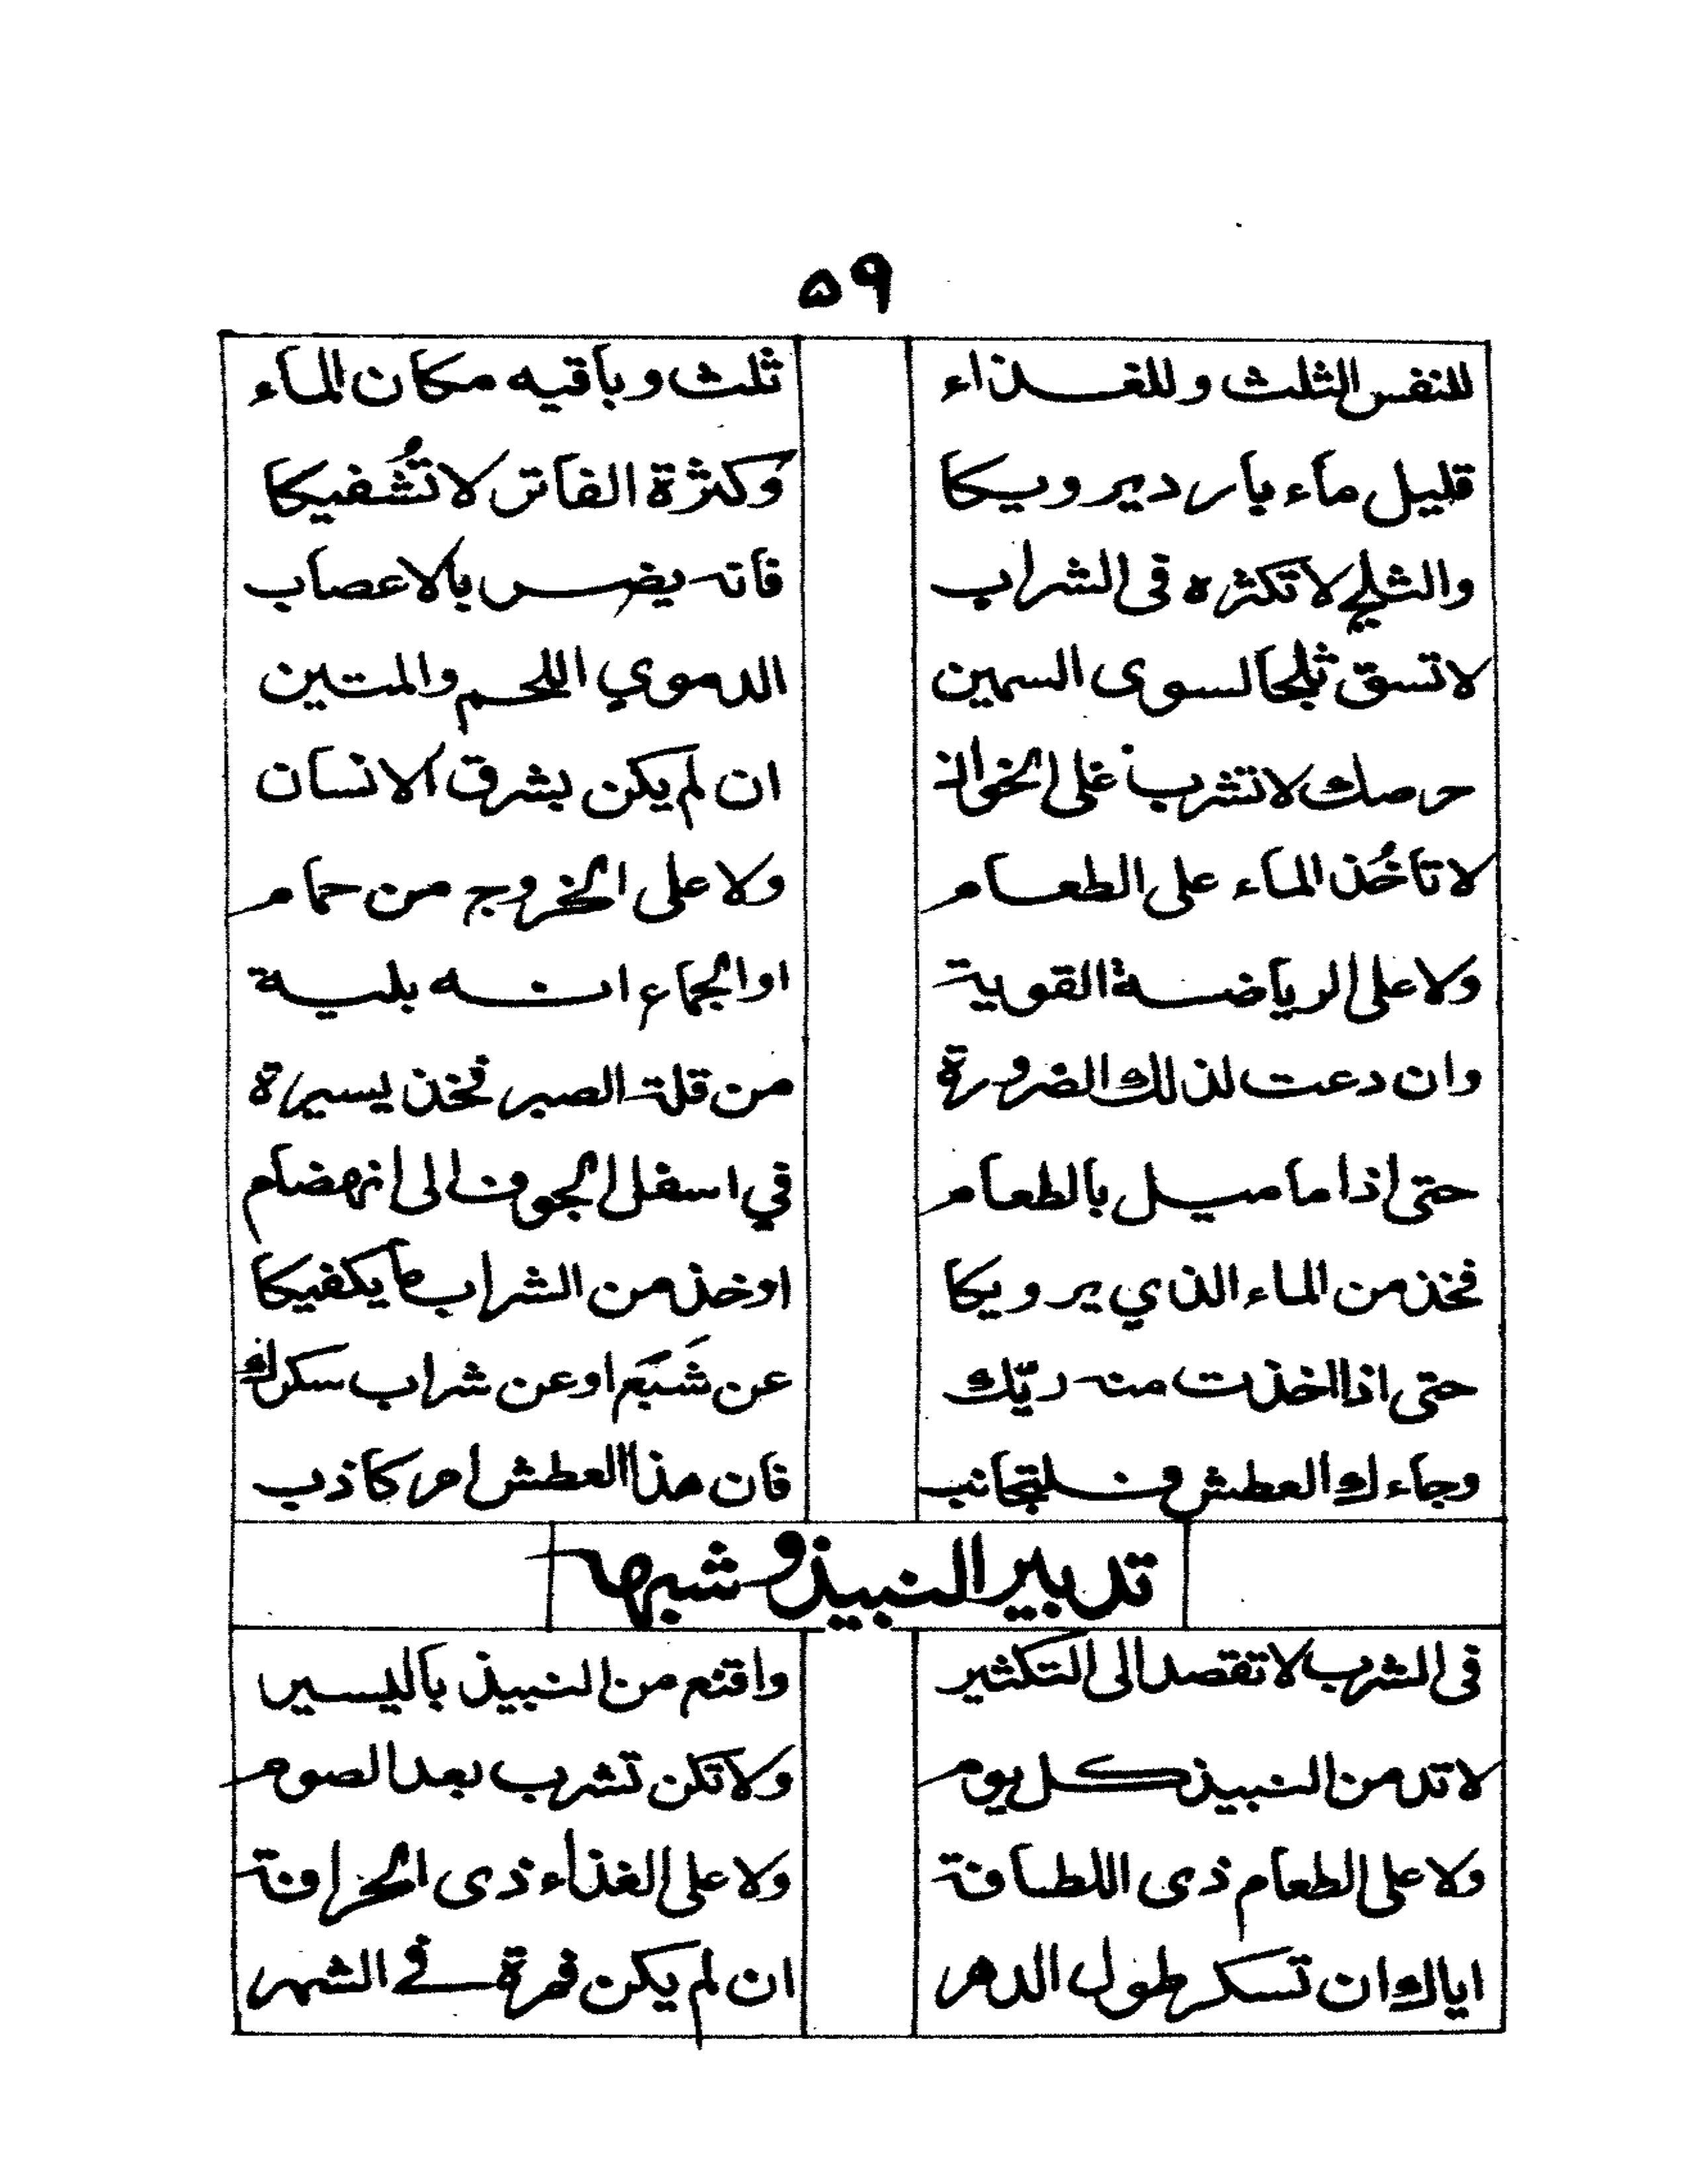 ۵۹
للنفس الثلث وللغذاء ثلث وباقيه مكان الماء
قليل ماء بارد يرويكا وكثرة الفاتر لا تُشفيكا
والثلج لا تكثره فى الشراب فانه يضر بالاعصاب
لا تسق ثلجا لسوى السمين الدموي اللحم والمتين
حرصك لا تشرب على الخوان ان لم يكن بشرق الانسان
لا تاخُذ الماء على الطعام ولا على الخروج من حمام
ولا على الرياضة القوية او الجماع انه بلية
وان دعت لذلك الضرورة من قلة الصبر فخذ يسيرة
حتى اذا ما ميل بالطعام في اسفل الجوف الى انهضام
فخذ من الماء الذي يرويكا او خذ من الشراب ما يكفيكا
حتى اذا اخذت منه ريّك عن شَبَع او عن شراب سكرك
وجاءك العطش فلتجانب فان هذا العطش امر كاذب
تدبير النبيذ وشبهه
فى الشرب لا تقصد الى التكثير واقنع من النبيذ باليسير
لا تدمن النبيذ كل يوم ولا تكن تشرب بعد الصوم
ولا على الطعام ذى اللطافة ولا على الغذاء ذى الحرافة
اياك ان تسكر طول الدهر ان لم يكن فمرة في الشهر